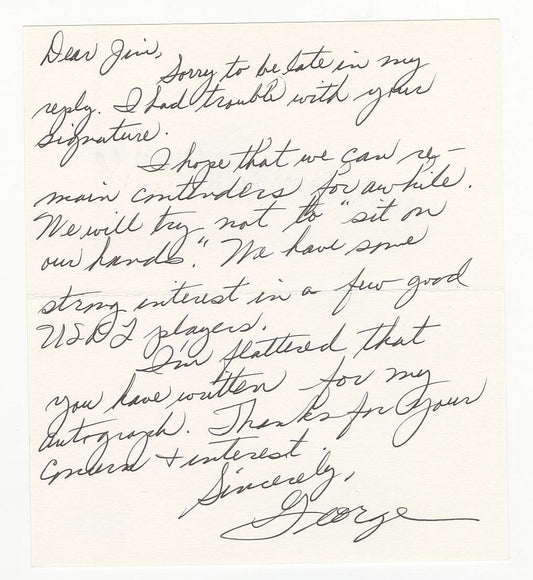 Dear Jim,
Sorry to be late in my
reply. I had trouble with your
signature.
I hope that we can re-
main contenders for awhile.
We will try not to "sit on
our hands." We have some
strong interest in a few good
USFL players.
I'm flattered that
you have written for my
autograph. Thanks for your
concern + interest.
Sincerely,
George